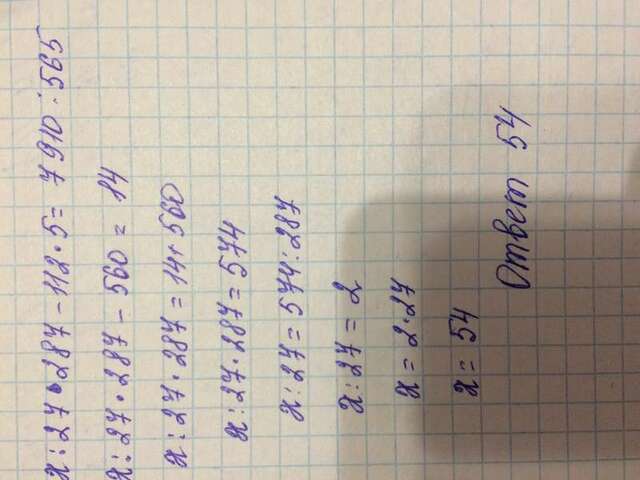 x : 27 · 287 - 112 · 5 = 7910 : 565
x : 27 · 287 - 560 = 14
x : 27 · 287 = 14 + 560
x : 27 · 287 = 574
x : 27 = 574 : 287
x : 27 = 2
x = 2 · 27
x = 54
Ответ 54